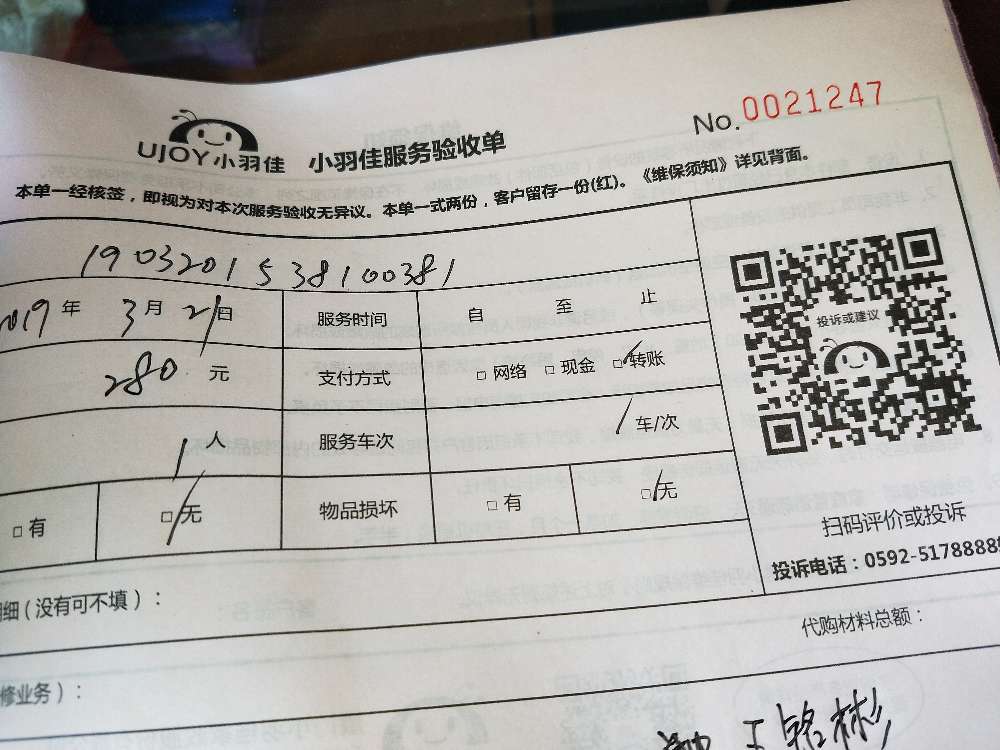 No.0021247
UJOY小羽佳 小羽佳服务验收单
本单一经核签，即视为对本次服务验收无异议。本单一式两份，客户留存一份(红)。《维保须知》详见背面。
1903201538100381
2019年 3月 21日 服务时间 自 至 止
280 元 支付方式 □ 网络 □ 现金 □ 转账
1 人 服务车次 1 车/次
□ 有 □ 无 物品损坏 □ 有 □ 无
投诉或建议
扫码评价或投诉
投诉电话：0592-5178888
细(没有可不填)：
代购材料总额：
修业务)：
王铭彬